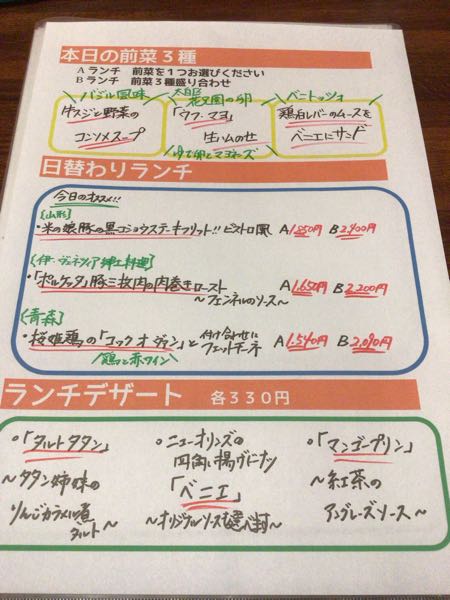 本日の前菜３種
Aランチ　前菜を１つお選びください
Bランチ　前菜３種盛り合わせ
バジル風味
牛スジと野菜の
コンソメスープ
花園の卵
「ウフ・マヨ」
生ハムのせ
ゆで卵とマヨネーズ
ベニトッツォ
鶏白レバーのムースを
ベニエにサンド
日替わりランチ
今日のオススメ!!
[山形]
・米の娘豚の黒コショウステーキフリット!! ビストロ風 A1.850円 B2.400円
[伊・ヴェネツィア 郷土料理]
・「ポルケッタ」豚三枚肉の肉巻きロースト A1.650円 B2.200円
～フェンネルのソース～
[青森]
・桜姫鶏の「コック オ ヴァン」と 付け合わせにフェットチーネ A1.540円 B2.090円
鶏と赤ワイン
ランチデザート　各３３０円
○「タルトタタン」
～タタン姉妹の
りんごカラメル煮
タルト～
○ニューオリンズの
四角い揚げドーナツ
「ベニエ」
～オリジナルソースも選べます～
○「マンゴープリン」
～紅茶の
アングレーズソース～